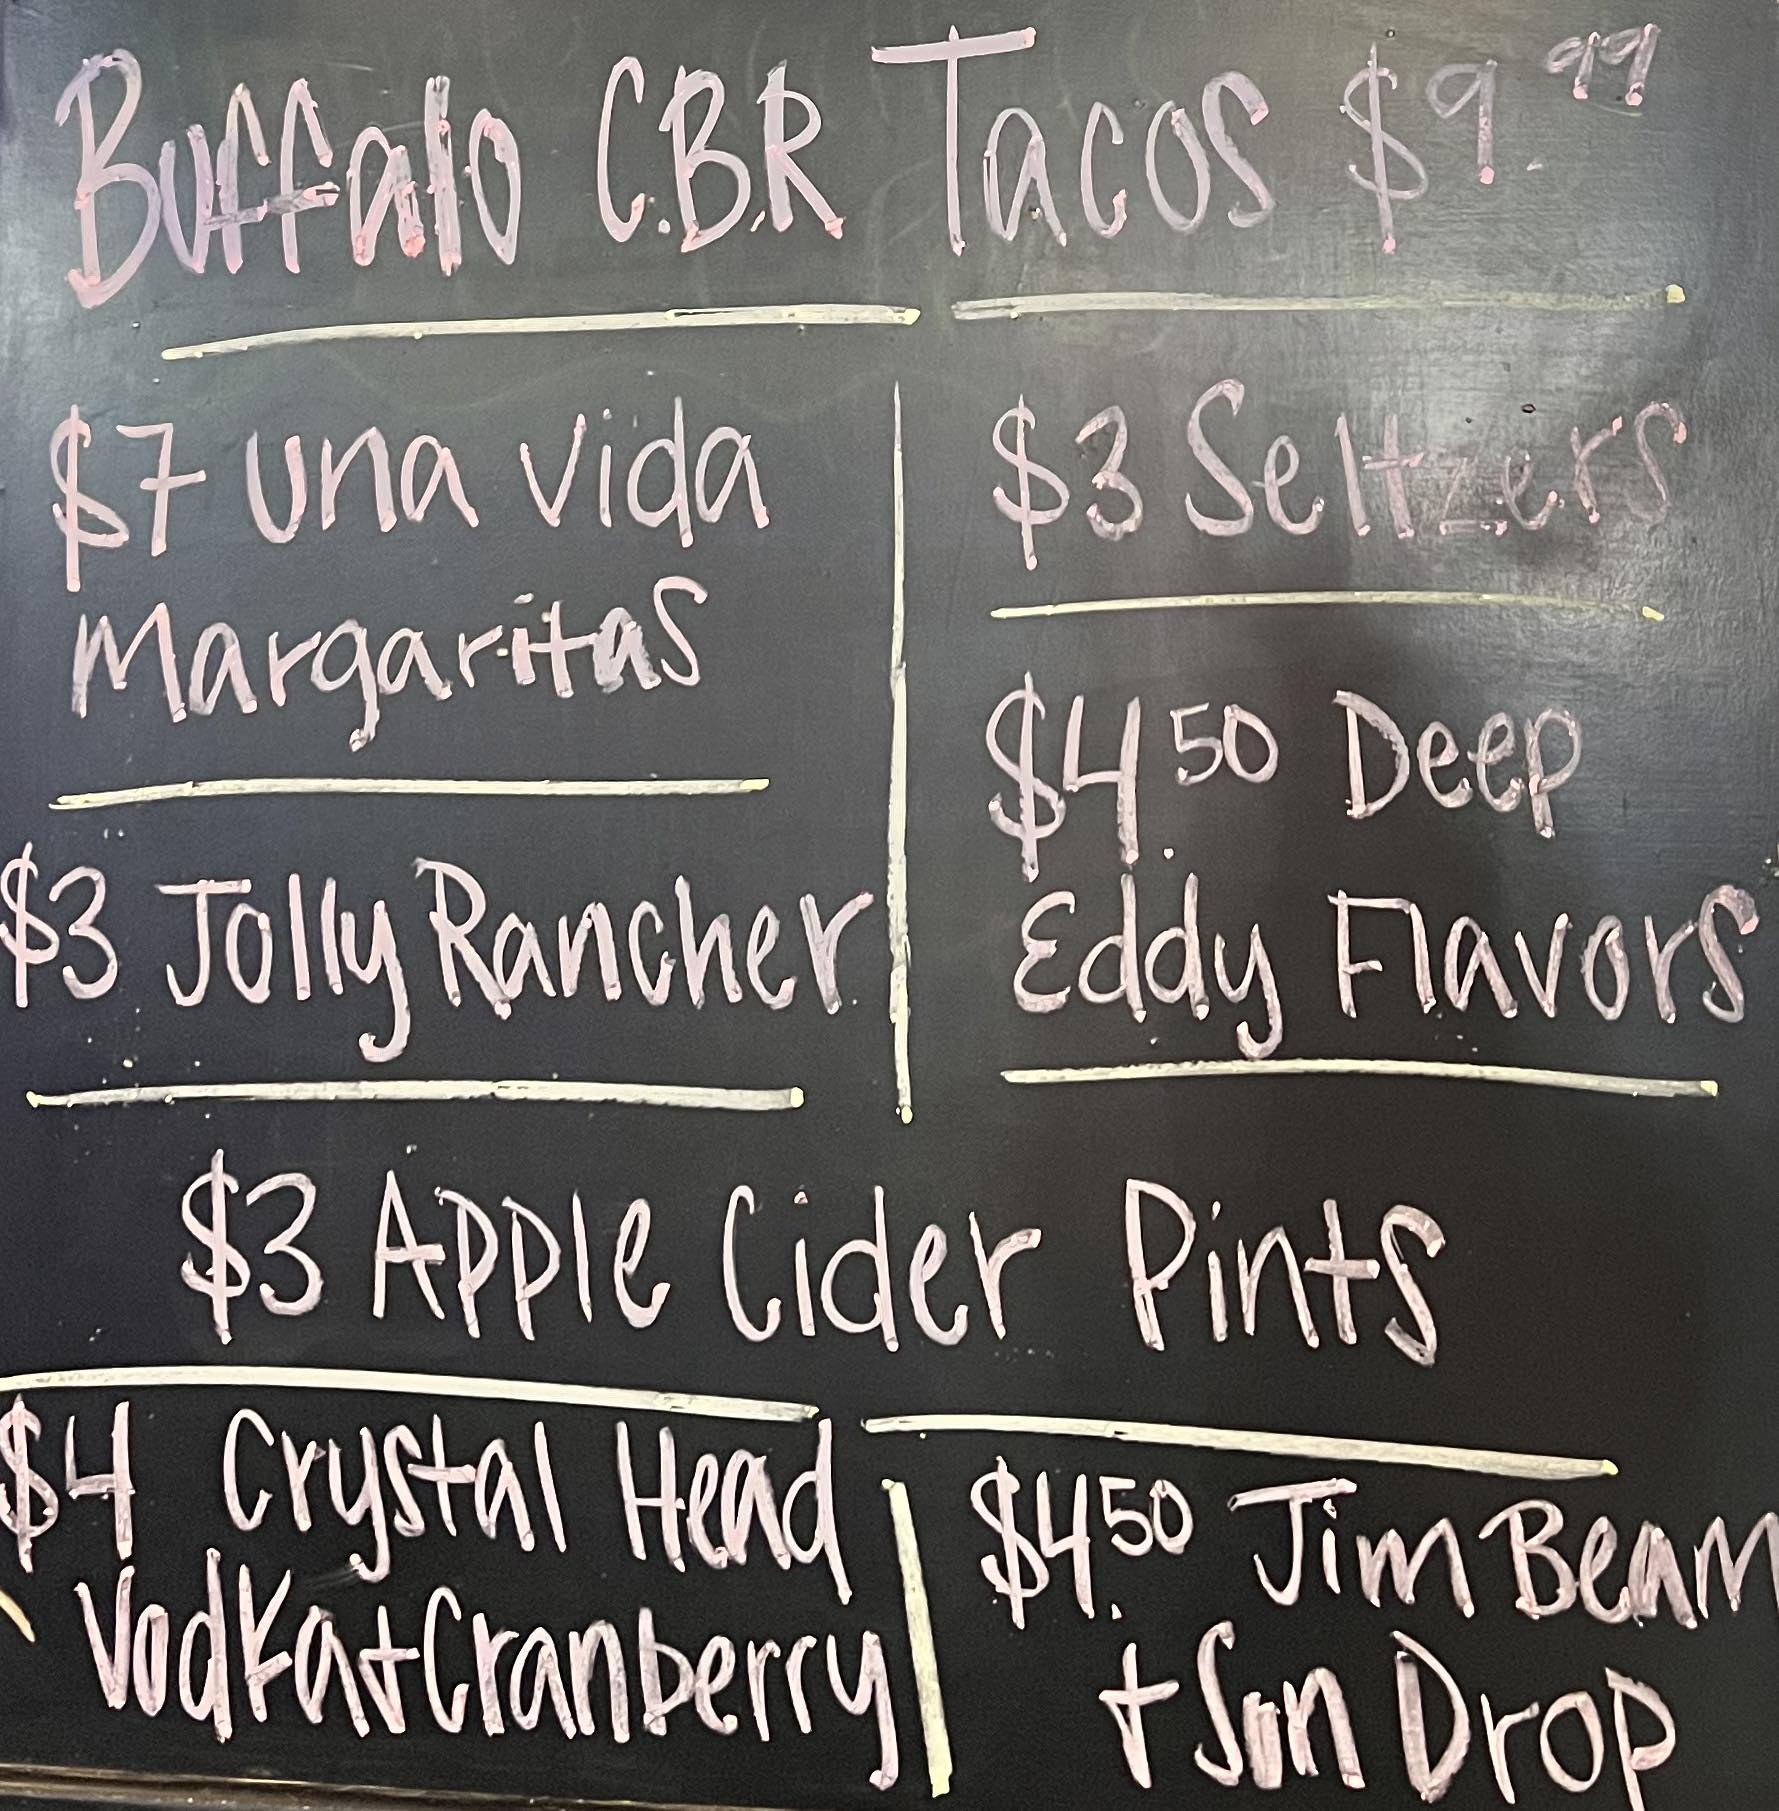 Buffalo C.B.R Tacos $9.99
$7 una vida
Margaritas
$3 Jolly Rancher
$3 Seltzers
$4.50 Deep
Eddy Flavors
$3 Apple Cider Pints
$4 Crystal Head
Vodka+Cranberry
$4.50 Jim Beam
+ Sun Drop